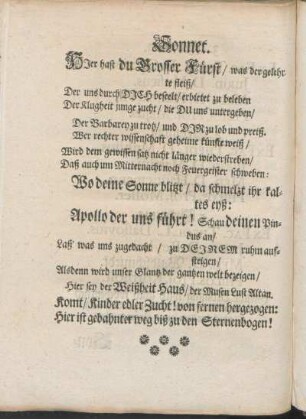 Sonnet.
HIer hast du Grosser Fürst/ was der gelehr
te fleiß/
Der uns durch DJCH beseelt/ erbietet zu beleben
Der Klugheit junge zucht/ die DU uns untergeben/
Der Barbarey zu trotz/ und DJR zu lob und preiß.
Wer rechter wissenschaft geheime künste weiß/
Wird dem gewissen satz nicht länger wiederstreben/
Daß auch um Mitternacht noch Feuergeister schweben:
Wo deine Sonne blitzt/ da schmelzt ihr kal-
tes eyß:
Apollo der uns führt! Schau deinen Pin-
dus an/
Laß' was uns zugedacht/ zu DEJNEM ruhm auf-
steigen/
Alsdenn wird unser Glantz der gantzen welt bezeigen/
Hier sey der Weißheit Haus/ der Musen Lust Altan.
Komt/ Kinder edler Zucht! von fernen hergezogen:
Hier ist gebahnter weg biß zu den Sternenbogen!